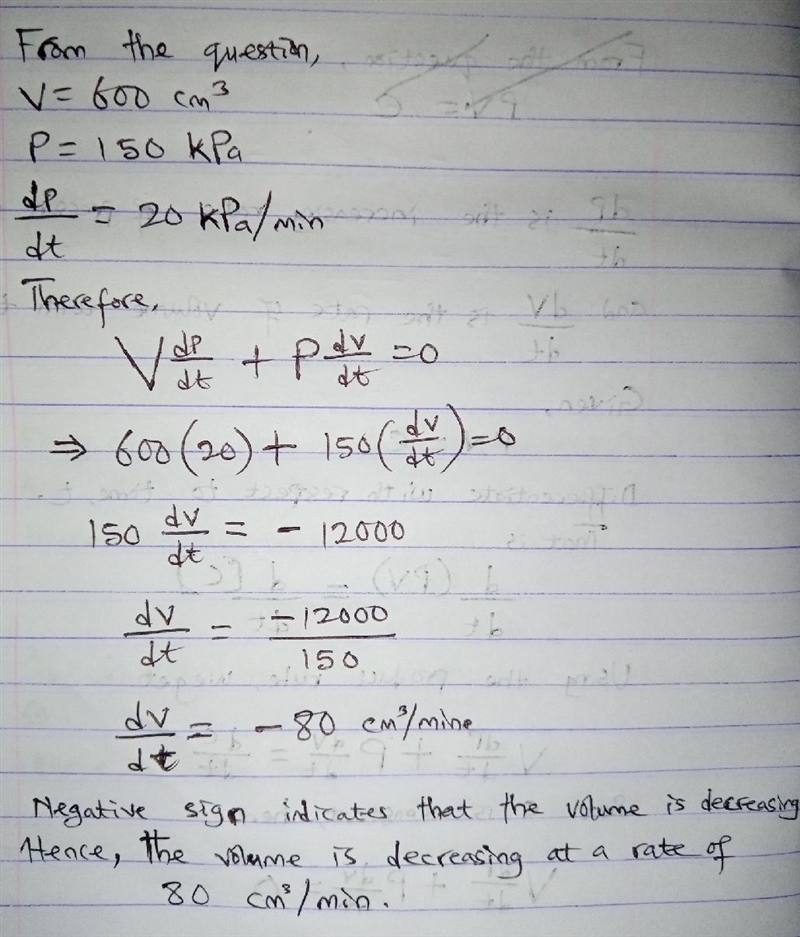 From the question,
V = 600 cm³
P = 150 kPa
dP/dt = 20 kPa/min
Therefore,
V dP/dt + P dv/dt = 0
⇒ 600(20) + 150(dv/dt) = 0
150 dv/dt = - 12000
dv/dt = -12000/150
dv/dt = - 80 cm³/mine
Negative sign indicates that the volume is decreasing
Hence, the volume is decreasing at a rate of
80 cm³/min.